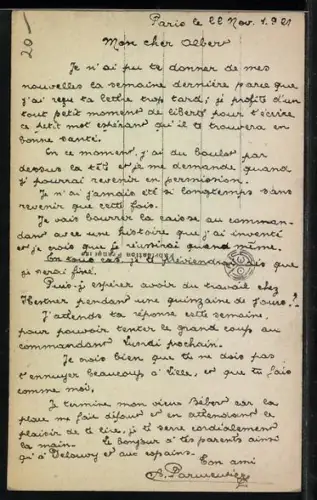 20
Paris le 22 Nov. 1921
Mon cher Albert
Je n'ai pu te donner de mes
nouvelles la semaine dernière parce que
j'ai reçu ta lettre trop tard; je profite d'un
tout petit moment de liberté pour t'écrire
ce petit mot espérant qu'il te trouvera en
bonne santé.
En ce moment j'ai du boulot par
dessus la tête et je me demande quand
je pourrai revenir en permission.
Je n'ai jamais été si longtemps sans
revenir que cette fois.
Je vais bourrer la caisse au comman-
dant avec une histoire que j'ai inventé
et je crois que je réussirai quand même.
En tous cas je te dès que
je serai fixé.
Puis-je espérer avoir du travail chez
pendant une quinzaine de jours?
J'attends ta réponse cette semaine,
pour pouvoir tenter le grand coup au
commandant Lundi prochain.
Je crois bien que tu ne dois pas
t'ennuyer beaucoup à Lille, et que tu fais
comme moi,
Je termine mon vieux Bébert car la
place me fait défaut et en attendant le
plaisir de te lire, je te serre cordialement
la main. Le bonjour à tes parents ainsi
qu'à et aux copains.
Ton ami
A. Parmentier